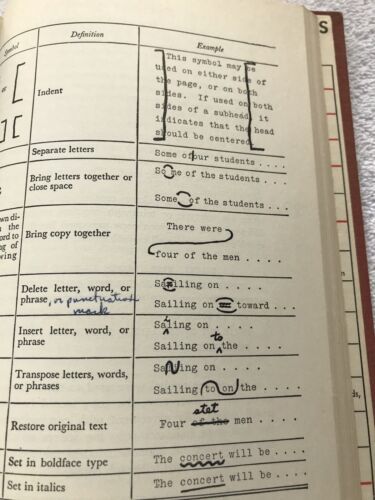 S
Symbol Definition Example
or [
Indent
This symbol may be
used on either side of
the page, or on both
sides. If used on both
sides of a subhead, it
indicates that the head
should be centered
] [
Separate letters
Some of|our students . . . .
Bring letters together or
close space
So me of the students . . . .
Some of the students . . . .
Bring copy together
There were
four of the men . . . .
Delete letter, word, or
phrase, or punctuation
mark
Sailing on . . . .
Sailing on toward . . .
Insert letter, word, or
phrase
Saling on . . . .
to
Sailing on ^ the . . . .
Transpose letters, words,
or phrases
Sailing on . . . .
Sailing to on the . . . .
Restore original text
stet
Four of the men . . . .
Set in boldface type
The concert will be . . . .
Set in italics
The concert will be . . . .